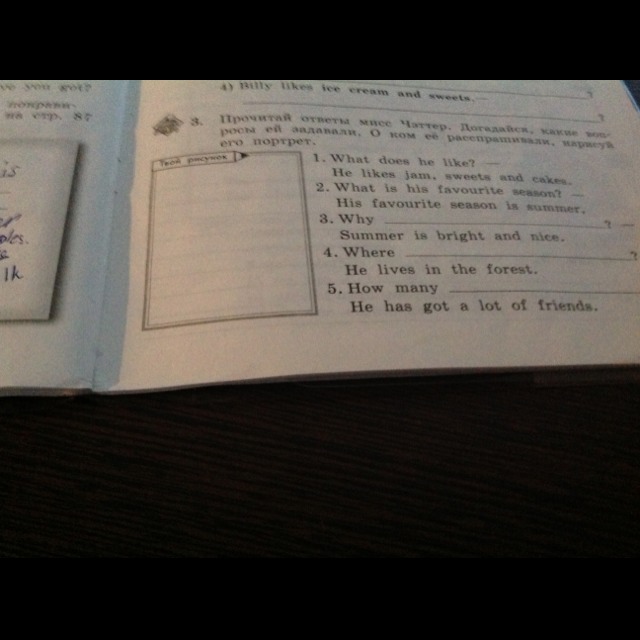 ve you got?
поправи-
на стр. 87
is
lk
4) Billy likes ice cream and sweets. —
?
3. Прочитай ответы мисс Чаттер. Догадайся, какие воп-
росы ей задавали. О ком её расспрашивали, нарисуй
его портрет.
Твой рисунок
1. What does he like? —
He likes jam, sweets and cakes.
2. What is his favourite season? —
His favourite season is summer.
3. Why ? —
Summer is bright and nice.
4. Where ?
He lives in the forest.
5. How many
He has got a lot of friends.